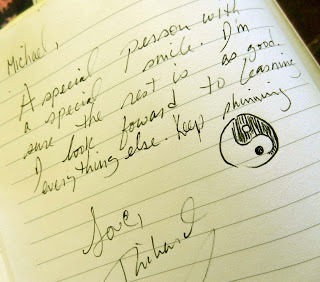 Michael,
A special person with
a special smile. I'm
sure the rest is as good.
I look foward to learning
everything else. Keep shinning
Love,
Richard